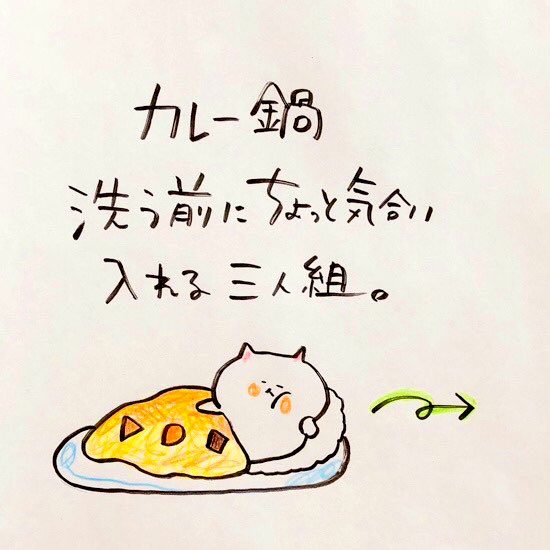 カレー鍋
洗う前にちょっと気合い
入れる三人組。